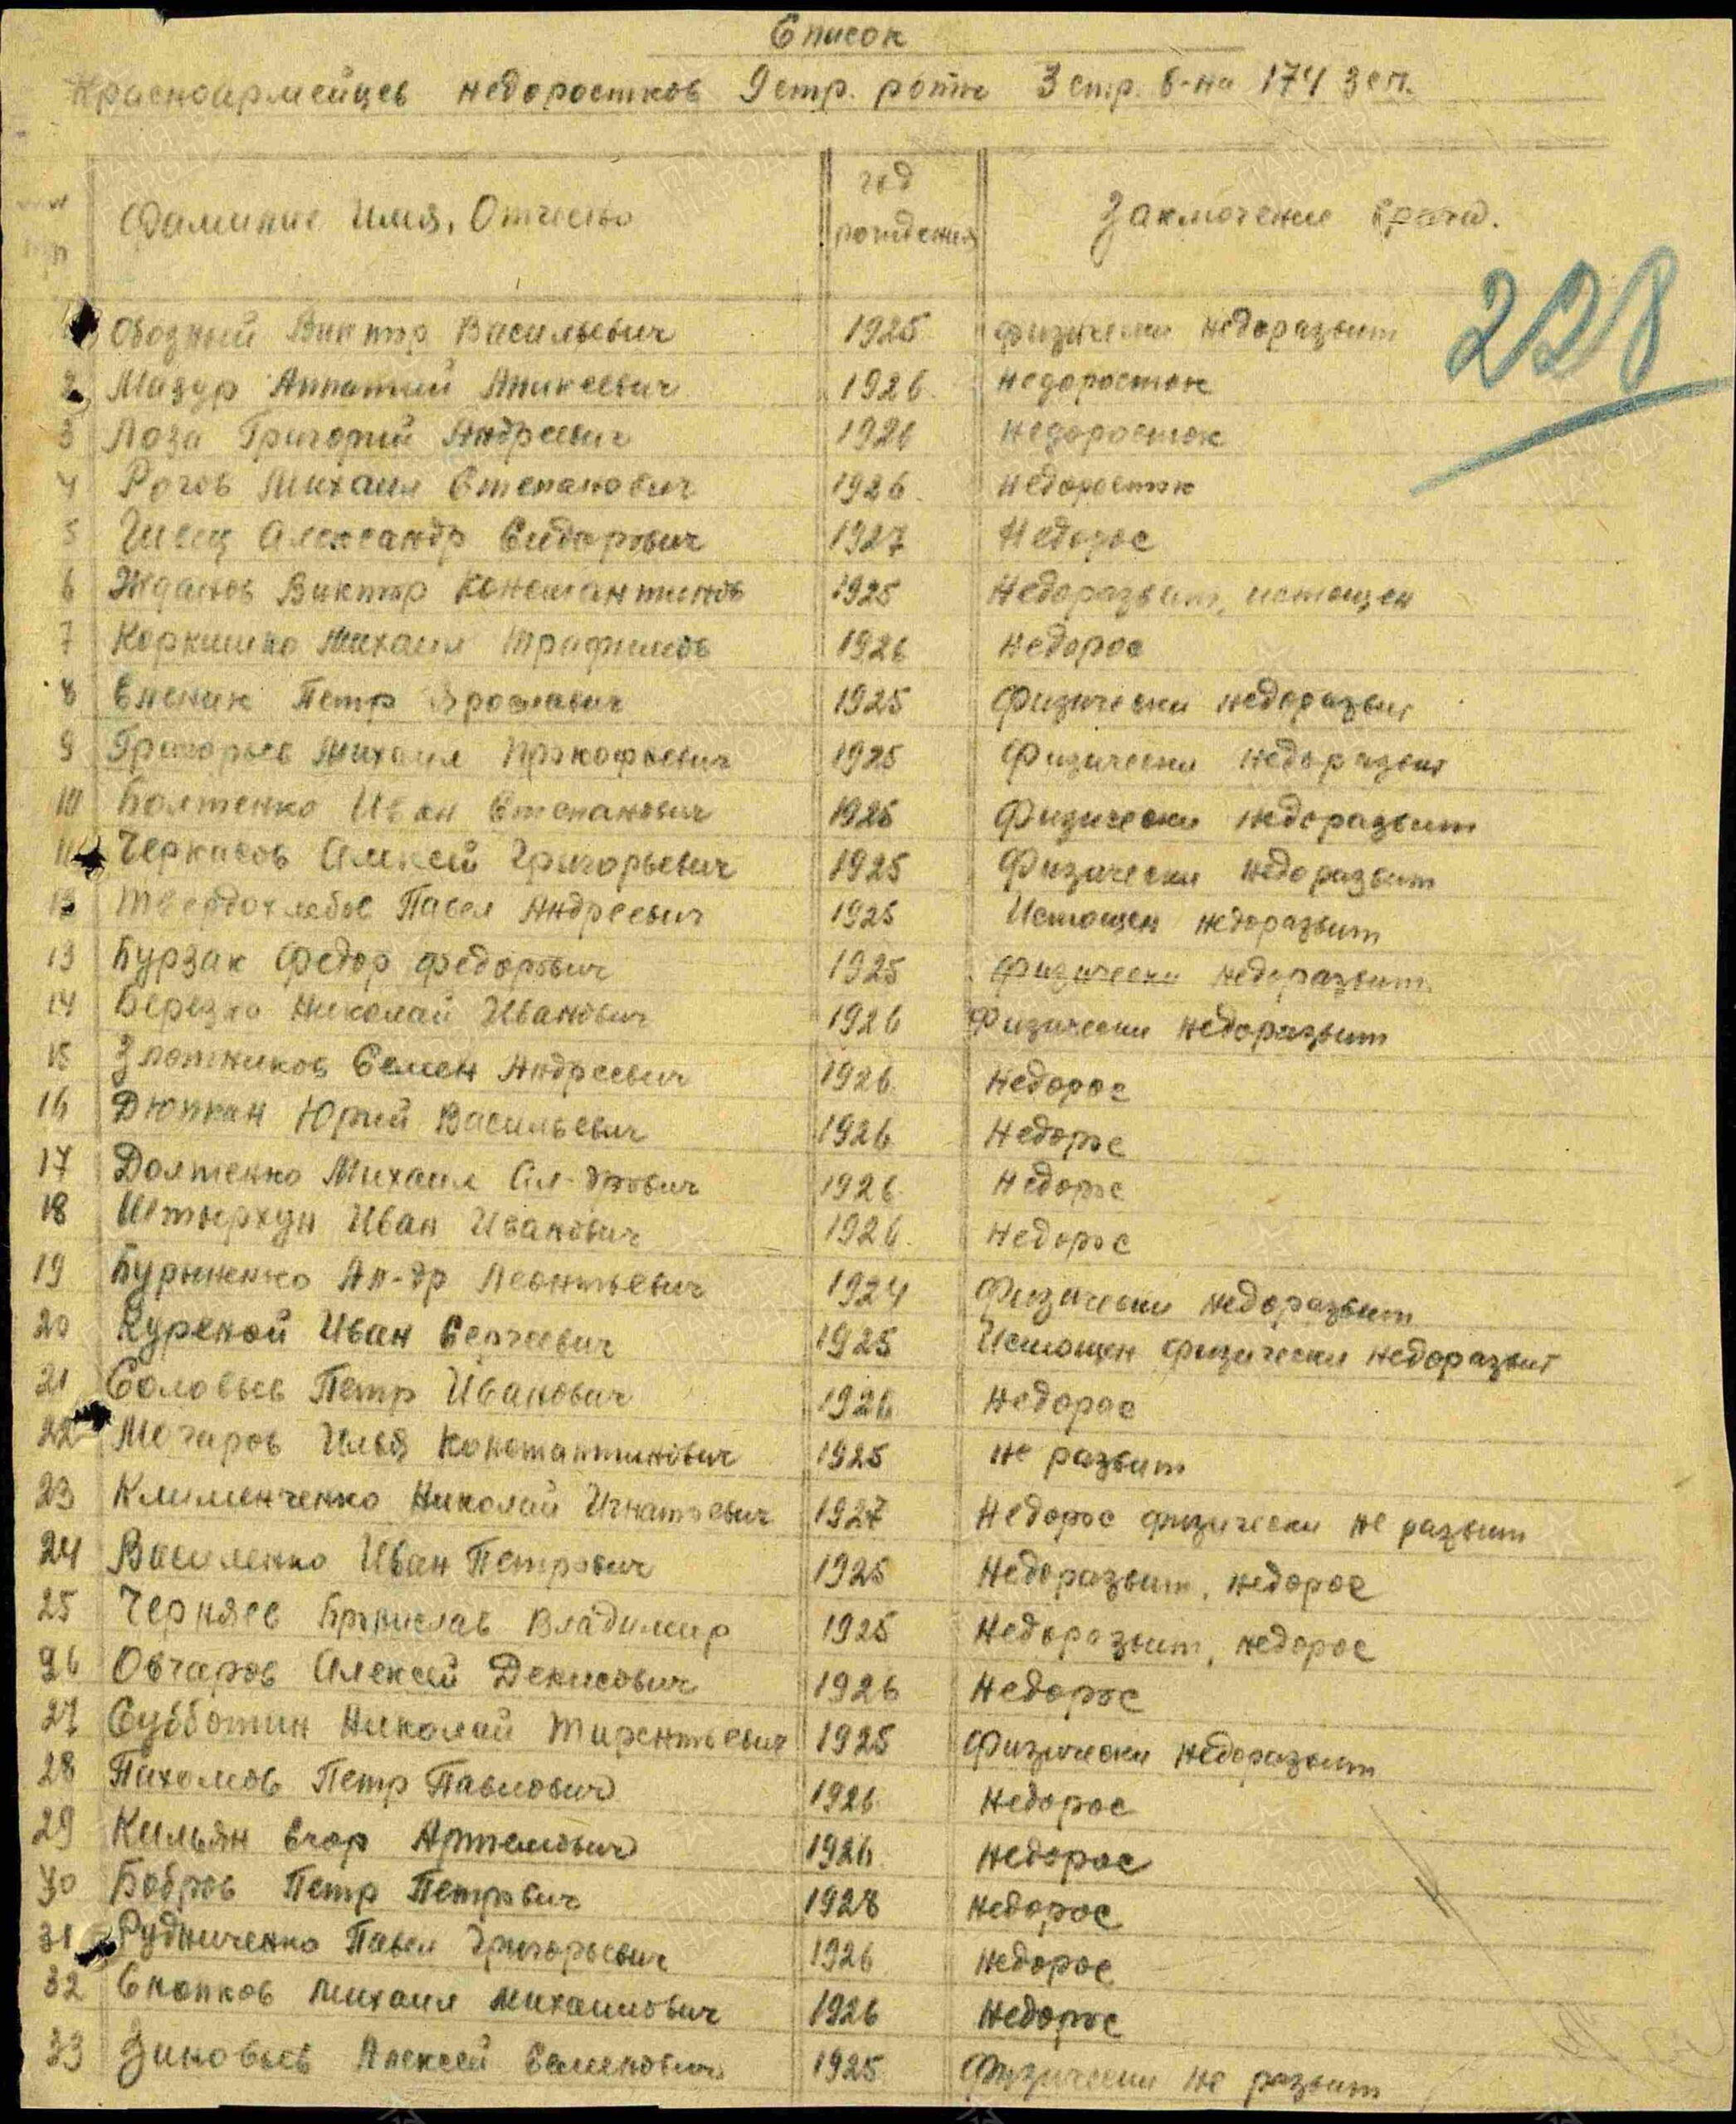 Список
Красноармейцев недоростков 9 стр. роты 3 стр. б-на 174 зсп.
Фамилие Имя, Отчество год рождения Заключение врача.
228
Обозный Виктор Васильевич 1925 физически недоразвит
2 Мазур Аникеевич 1926 недоросток
3 Лоза Григорий Андреевич 1926 недоросток
4 Рогов Михаил Степанович 1926 недоросток
5 Швец Александр Сидорович 1927 Недорос
6 Жданов Виктор Константинов 1925 Недоразвит, истощен
7 Коркишко Михаил Трафимов 1926 Недорос
8 Петр 1925 Физически недоразвит
9 Григорьев Михаил Прокофьевич 1925 Физически недоразвит
10 Болтенко Иван Степанович 1925 Физически недоразвит
11 Черкасов Алексей Григорьевич 1925 Физически недоразвит
12 Твердохлебов Павел Андреевич 1925 Истощен недоразвит
13 Бурзак Федор Федорович 1925 физически недоразвит
14 Березко Николай Иванович 1926 Физически недоразвит
15 Злотников Семен Андреевич 1926 Недорос
16 Дюкман Юрий Васильевич 1926 Недорос
17 Долженко Михаил Ал-дрович 1926 Недорос
18 Штырхун Иван Иванович 1926 Недорос
19 Ал-др Леонтьевич 1924 Физически недоразвит
20 Куреной Иван Сергеевич 1925 Истощен физически недоразвит
21 Соловьев Петр Иванович 1926 Недорос
22 Мочаров Илья Константинович 1925 не развит
23 Клименченко Николай Игнатьевич 1927 Недорос физически не развит
24 Василенко Иван Петрович 1925 Недоразвит, недорос
25 Черняев Бронислав Владимир 1925 Недоразвит, недорос
26 Овчаров Алексей Денисович 1926 Недорос
27 Субботин Николай Тирентьевич 1925 Физически недоразвит
28 Пахомов Петр Павлович 1926 Недорос
29 Кильян Егор Артемович 1926 Недорос
30 Бобров Петр Петрович 1928 Недорос
31 Рудниченко Павел Григорьевич 1926 Недорос
32 Скопков Михаил Михайлович 1926 Недорос
33 Зиновьев Алексей Семенович 1925 Физически не развит